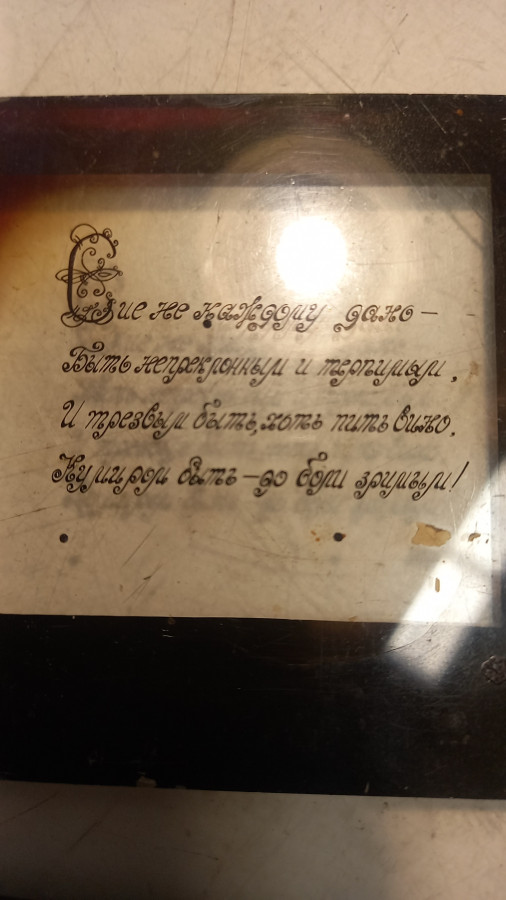 Сие не каждому дано —
Быть непреклонным и терпимым,
И трезвым быть, хоть пить вино.
Кумиром быть — до боли зримым!